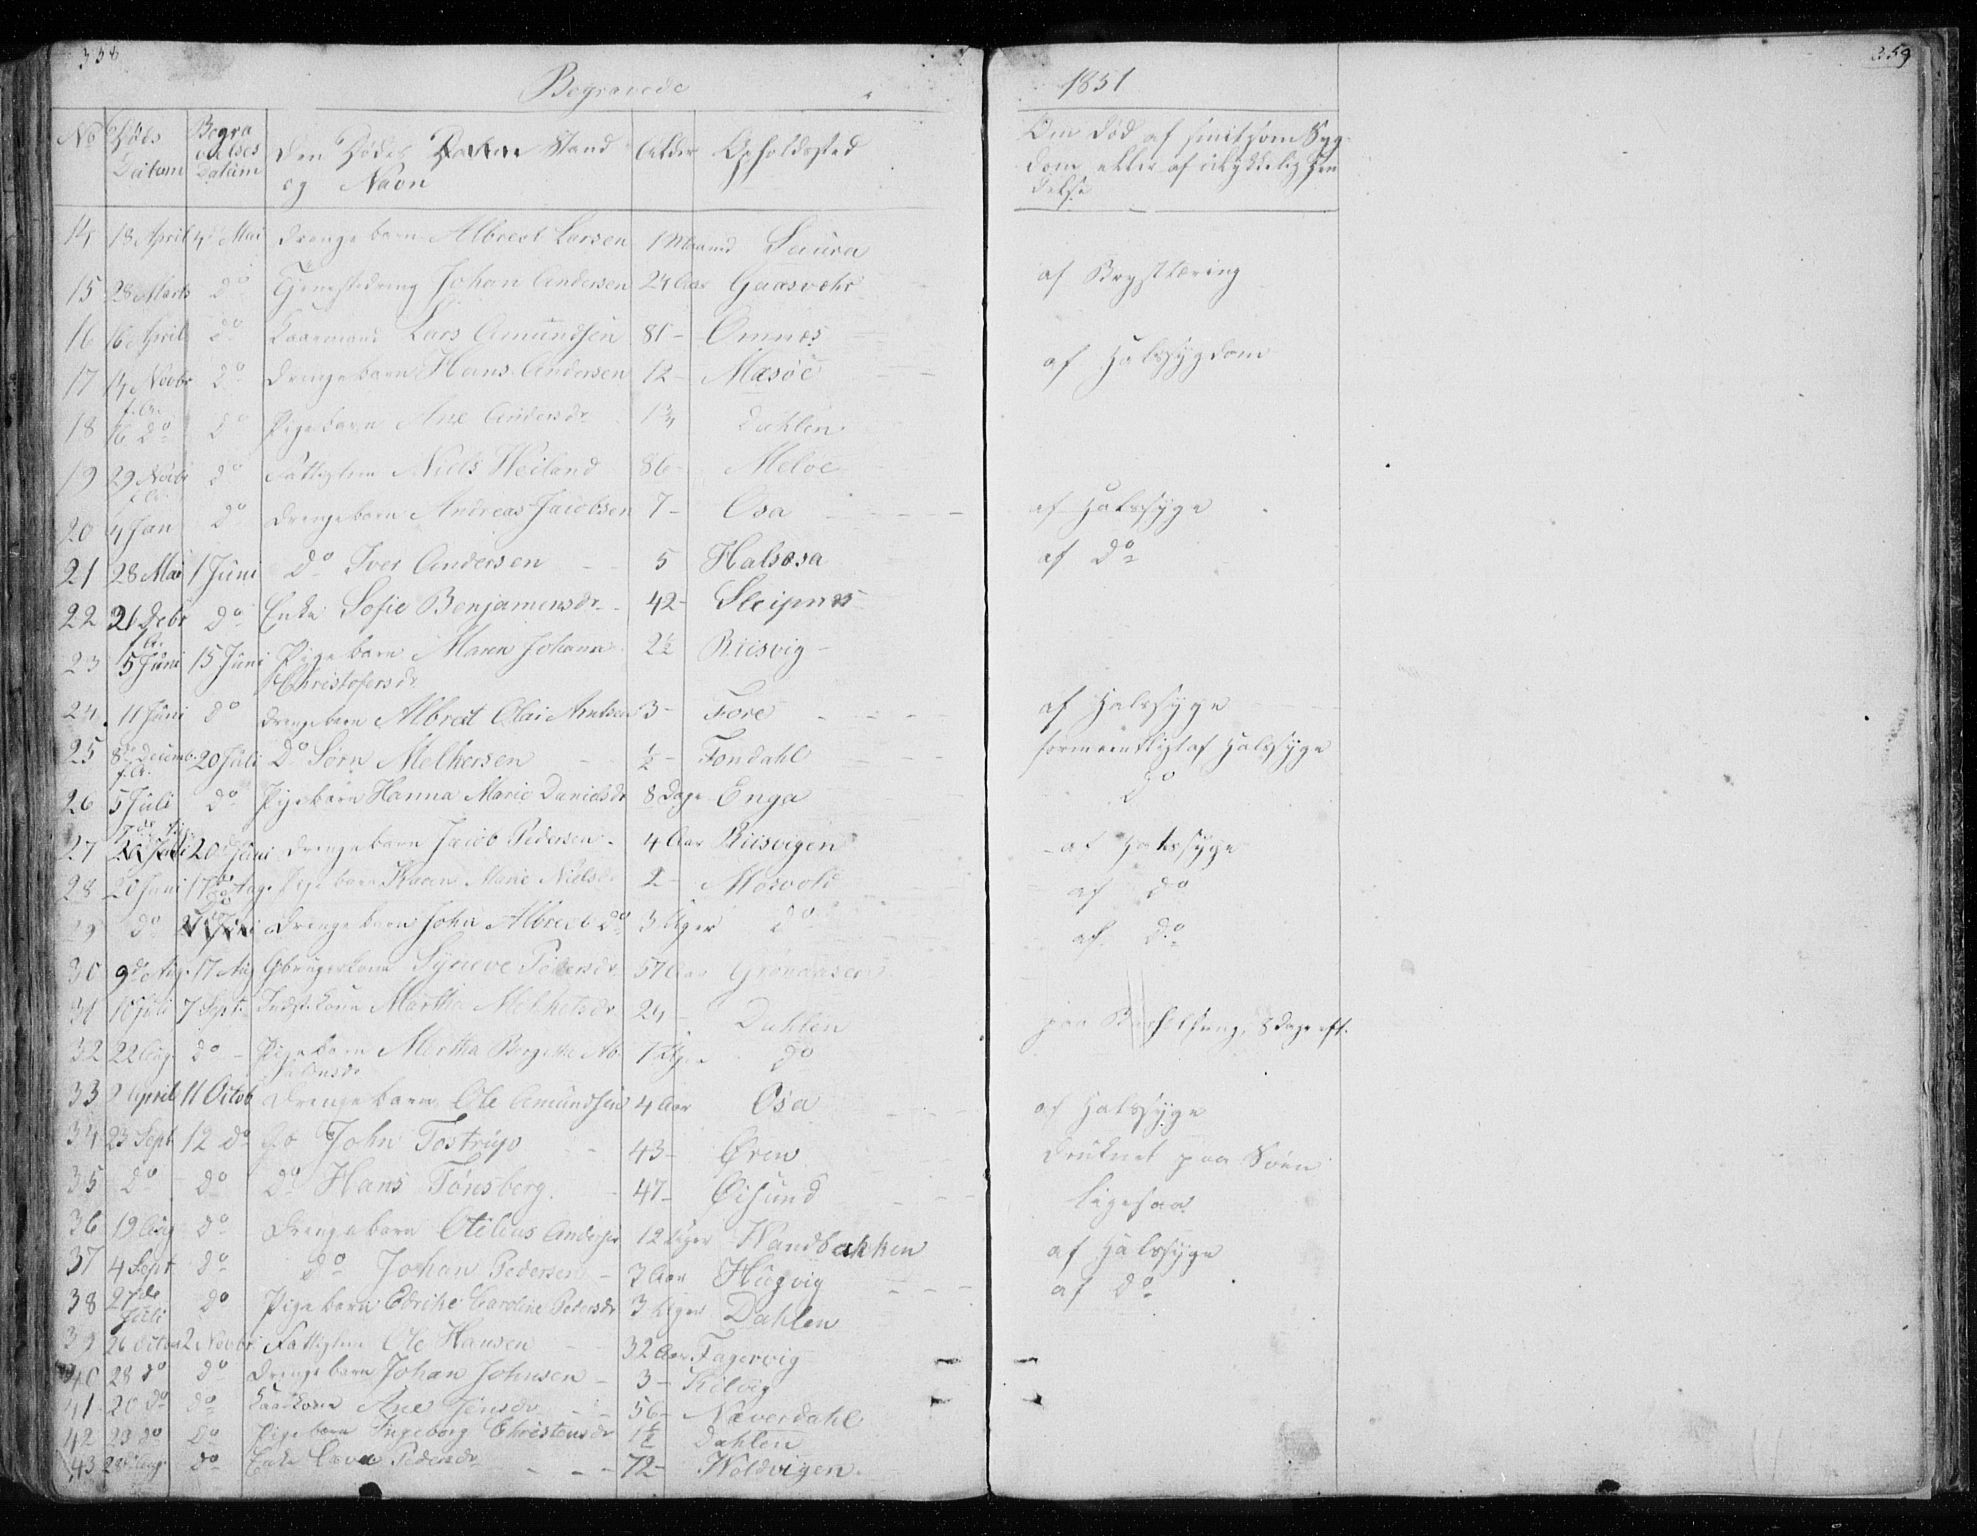 358
Begravede
1851
359
No Døds Datum Begravelses Datum Den Dødes Stand og Navn Alder Opholdssted
Om død af smitsom Sygdom eller af ulykkelig Hendelse
14 18 April 4 Mai Drengebarn Albrect Larsen 1 Maaned Saura
15 28 Marts do Tjenestedreng Johan Andersen 24 Aar Gaasvær af Brystlæring
16 16 April do Kaarmand Lars Amundsen 81 - Ømnes
17 14 Novbr f.A. do Drengebarn Hans Andersen 12 - Mæsøe af Halssygdom
18 16 do do Pigebarn Ane Andersdr 1¾ Dahlen
19 29 Novbr f.A. do Fattiglem Niels Weiland 86 - Meløe
20 4 Jan do Drengebarn Andreas Jacobsen 7 - Osa af Halssyge
21 28 Mai 1 Juni do Iver Andersen 5 Halsosa af do
22 21 Debr f.A. do Enke Sofie Benjamensdr 42 - Sleipnes
23 5 Juni 15 Juni Pigebarn Maren Johanna 2½ Riisvig -
Christofersdr
24 11 Juni do Drengebarn Albrect Olai Arntsen 3 - Fore af Halssyge
25 8 Decemb. f.A. 20 Juli do Sørn Melkersen ½ - Fondahl formeentligt af Halssyge
26 5 Juli do Pigebarn Hanna Marie Danielsdr 8 Dage Enga do
27 20 Juni Drengebarn Jacob Pedersen 4 Aar Riisvigen af Halssyge
28 20 Juni 17 Aug. Pigebarn Karen Marie Nielsdr 2 - Mosvold af do
29 do Drengebarn John Albrect do 3 Uger do af do
30 9 Aug. 17 Aug Gbrugerkone Synneve Pedersdr 57 Aar Grønaasen
31 10 Juli 7 Sept. Indst.kone Martha Melkersdr 24 - Dahlen paa Barselseng, 8 dage eft.
32 22 Aug. do Pigebarn Mertha Bergithe 1 do
33 2 April 11 Octob Drengebarn Ole Amundsen 4 Aar Osa af Halssyge
34 23 Sept 12 do Gb John Tostrup 43 - Øren druknet paa Søen
35 do do do Hans Tønsberg. 47 - Øisund ligesaa
36 19 Aug do Drengebarn Otelius Anders 12 Uger Wandbakken af Halssyge
37 4 Sept do do Johan Pedersen - 3 Aar Hugvig af do
38 27de Juli do Pigebarn Edrike Caroline Pedersdr 3 Uger Dahlen
39 26 Octob 2 Novbr Fattiglem Ole Hansen 32 Aar Fagervig
40 28 do do Drengebarn Johan Johnsen - 3 - Kilvig
41 20 do do Kaarkone Ane Jensdr 56 - Næverdahl
42 29 do do Pigebarn Ingeborg Christensdr 1½ Dahlen
43 28 Aug. do Enke Pedersdr 72 - Woldvigen